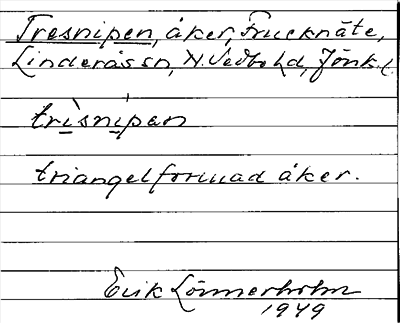 Tresnipen, åker, Frucknäte,
Linderås sn, N. Vedbo hd, Jönk. l.
trìsnìpen
triangelformad åker.
Erik Lönnerholm
1949